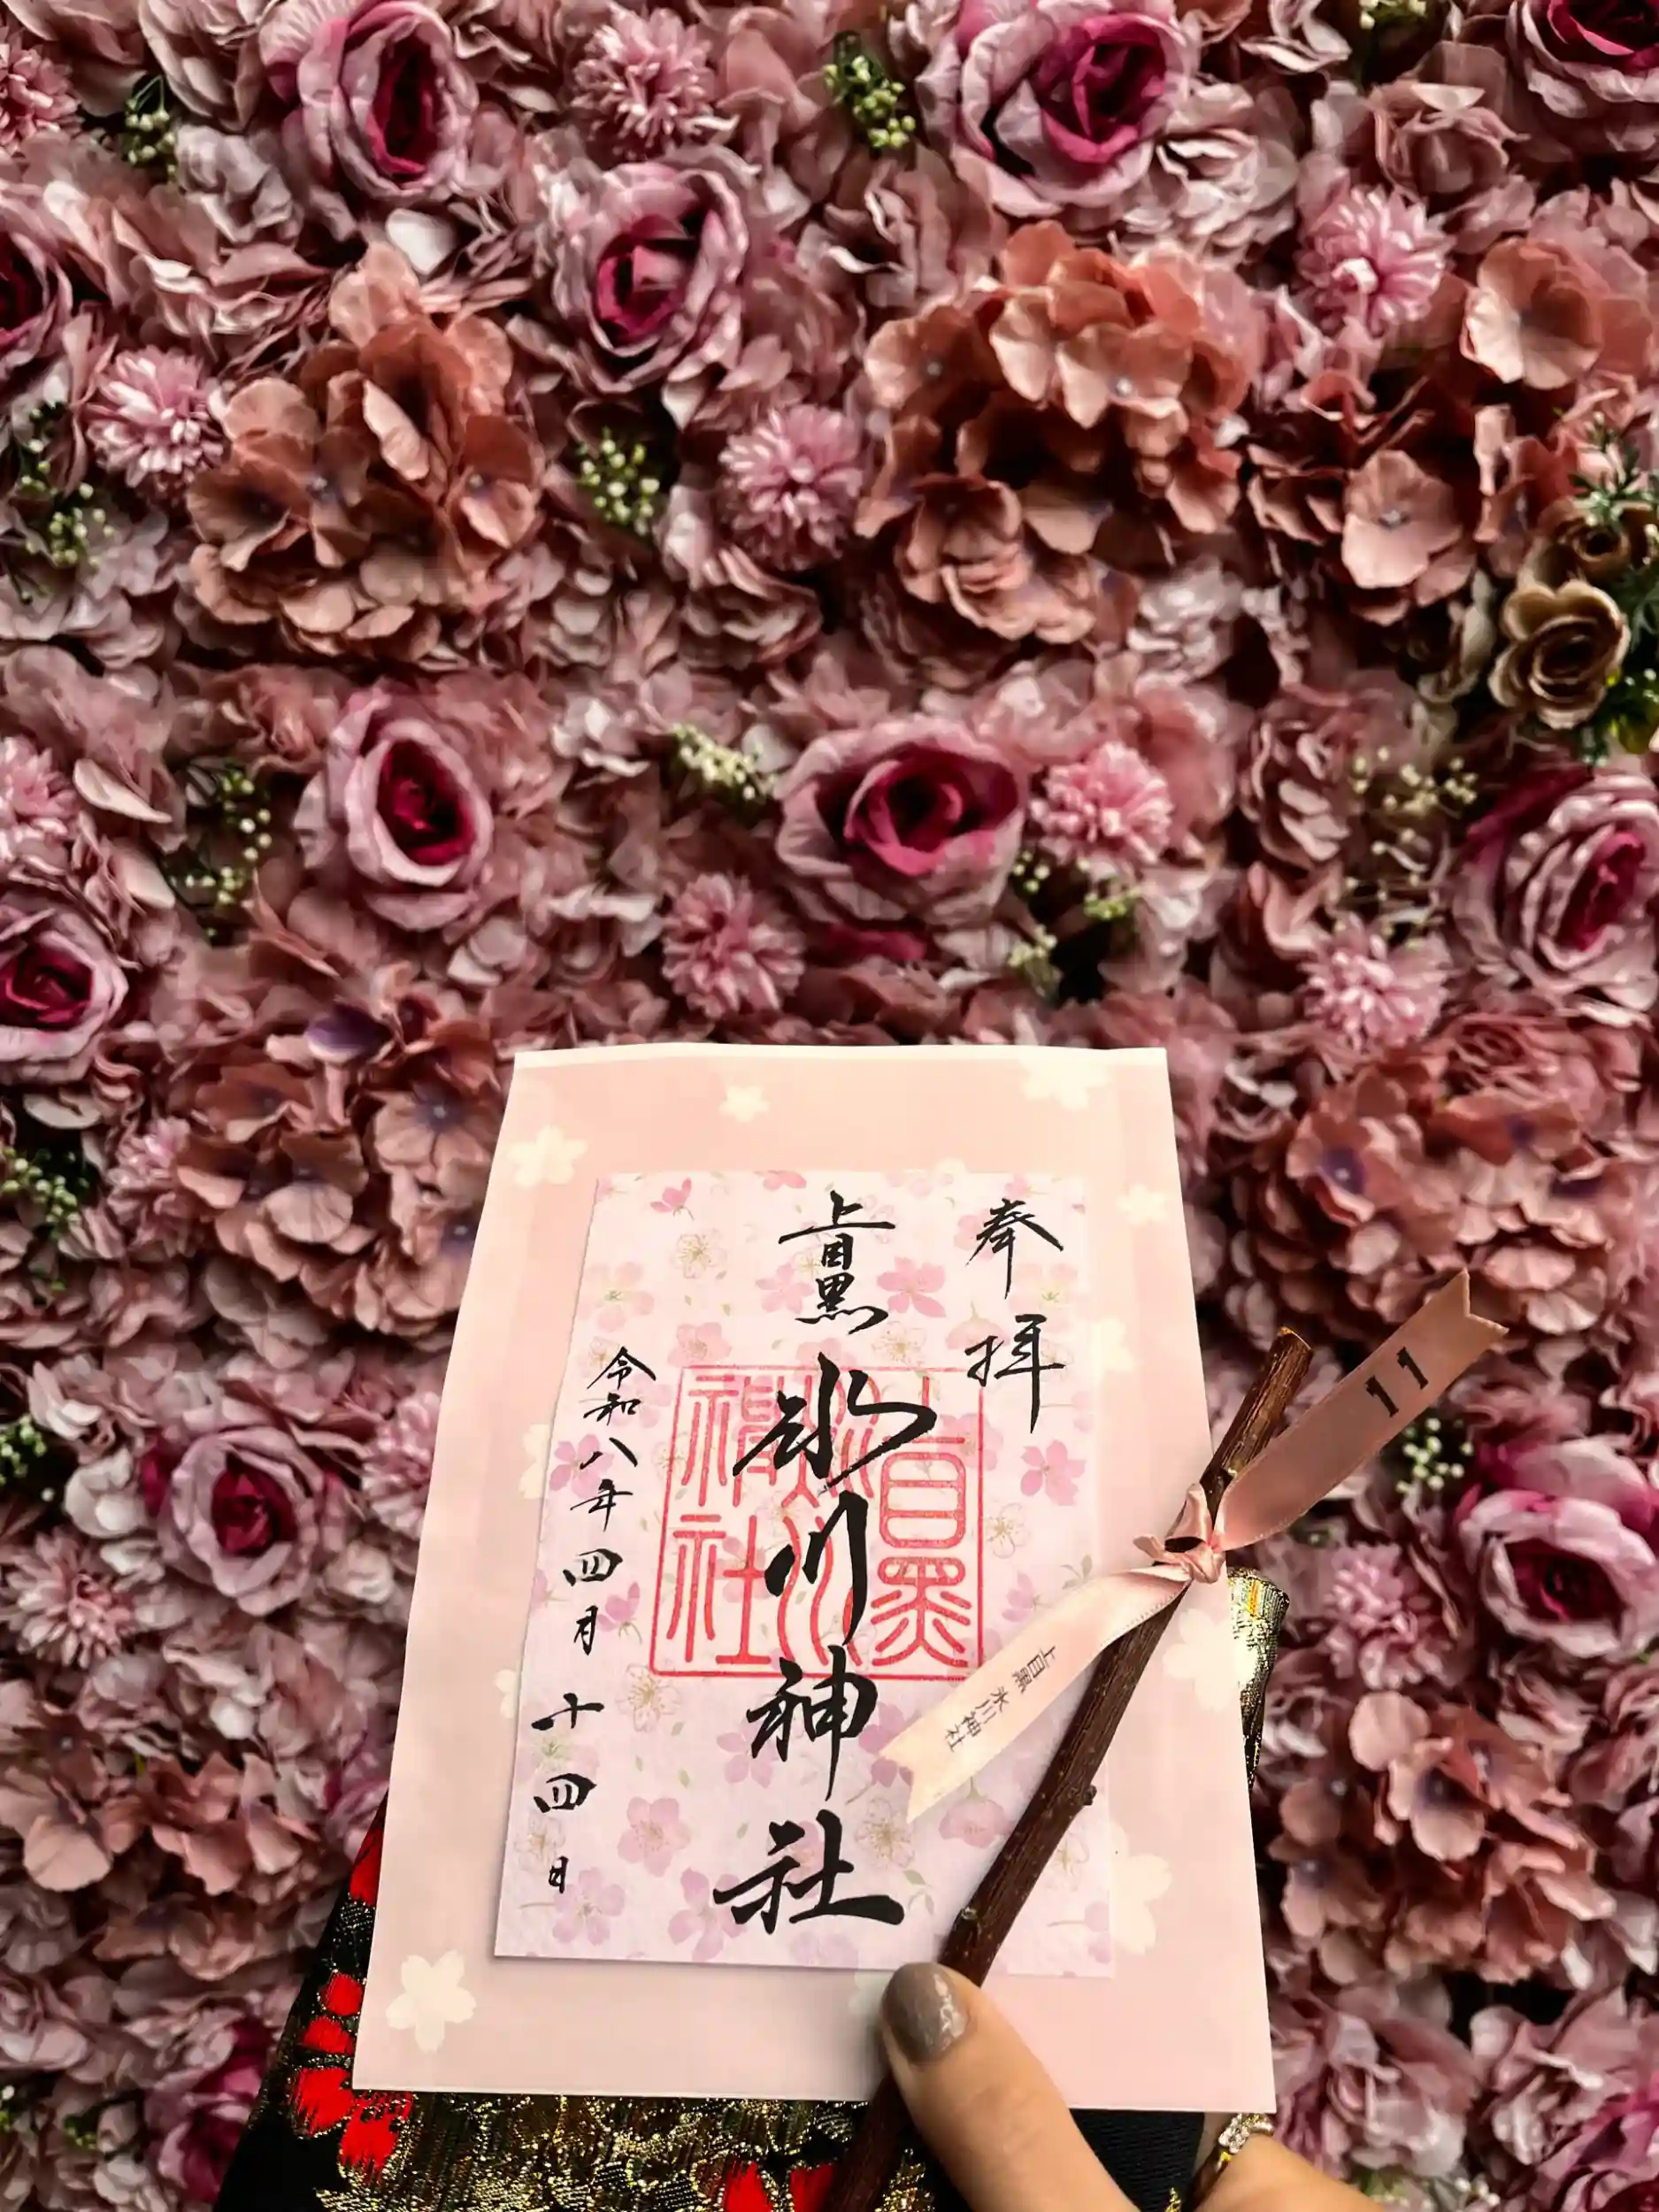 奉拝
上目黒
氷川神社
令和八年四月十四日
上目黒
氷川
神社
11
上目黒 氷川神社